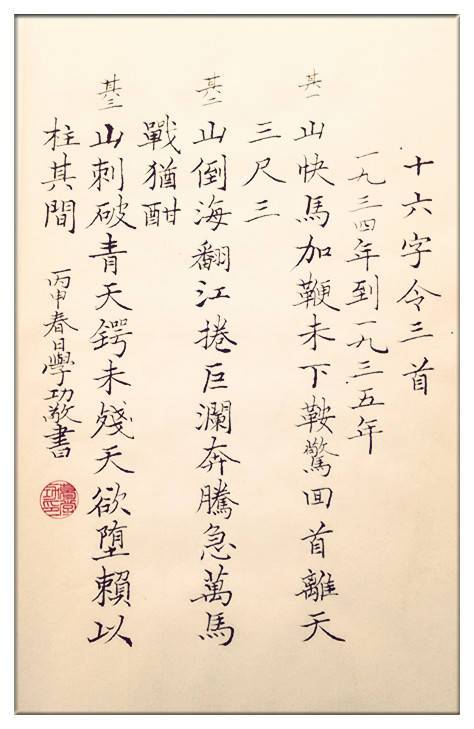 十六字令三首
一九三四年到一九三五年
其一
山快馬加鞭未下鞍驚回首離天
三尺三
其二
山倒海翻江捲巨瀾奔騰急萬馬
戰猶酣
其三
山刺破青天鍔未殘天欲堕賴以
柱其間
丙申春日學功敬書